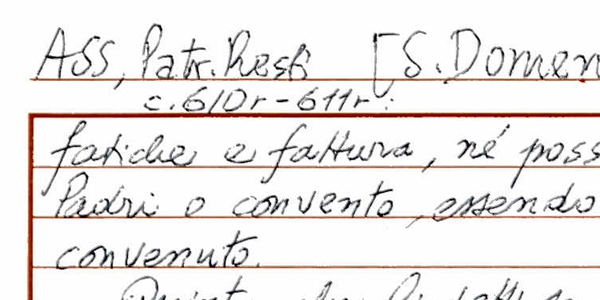 ASS, Patr. Resti [S. Domen
c. 610r - 611r:
fatiche e fattura, né poss
Padri o convento, essendo
convenuto.